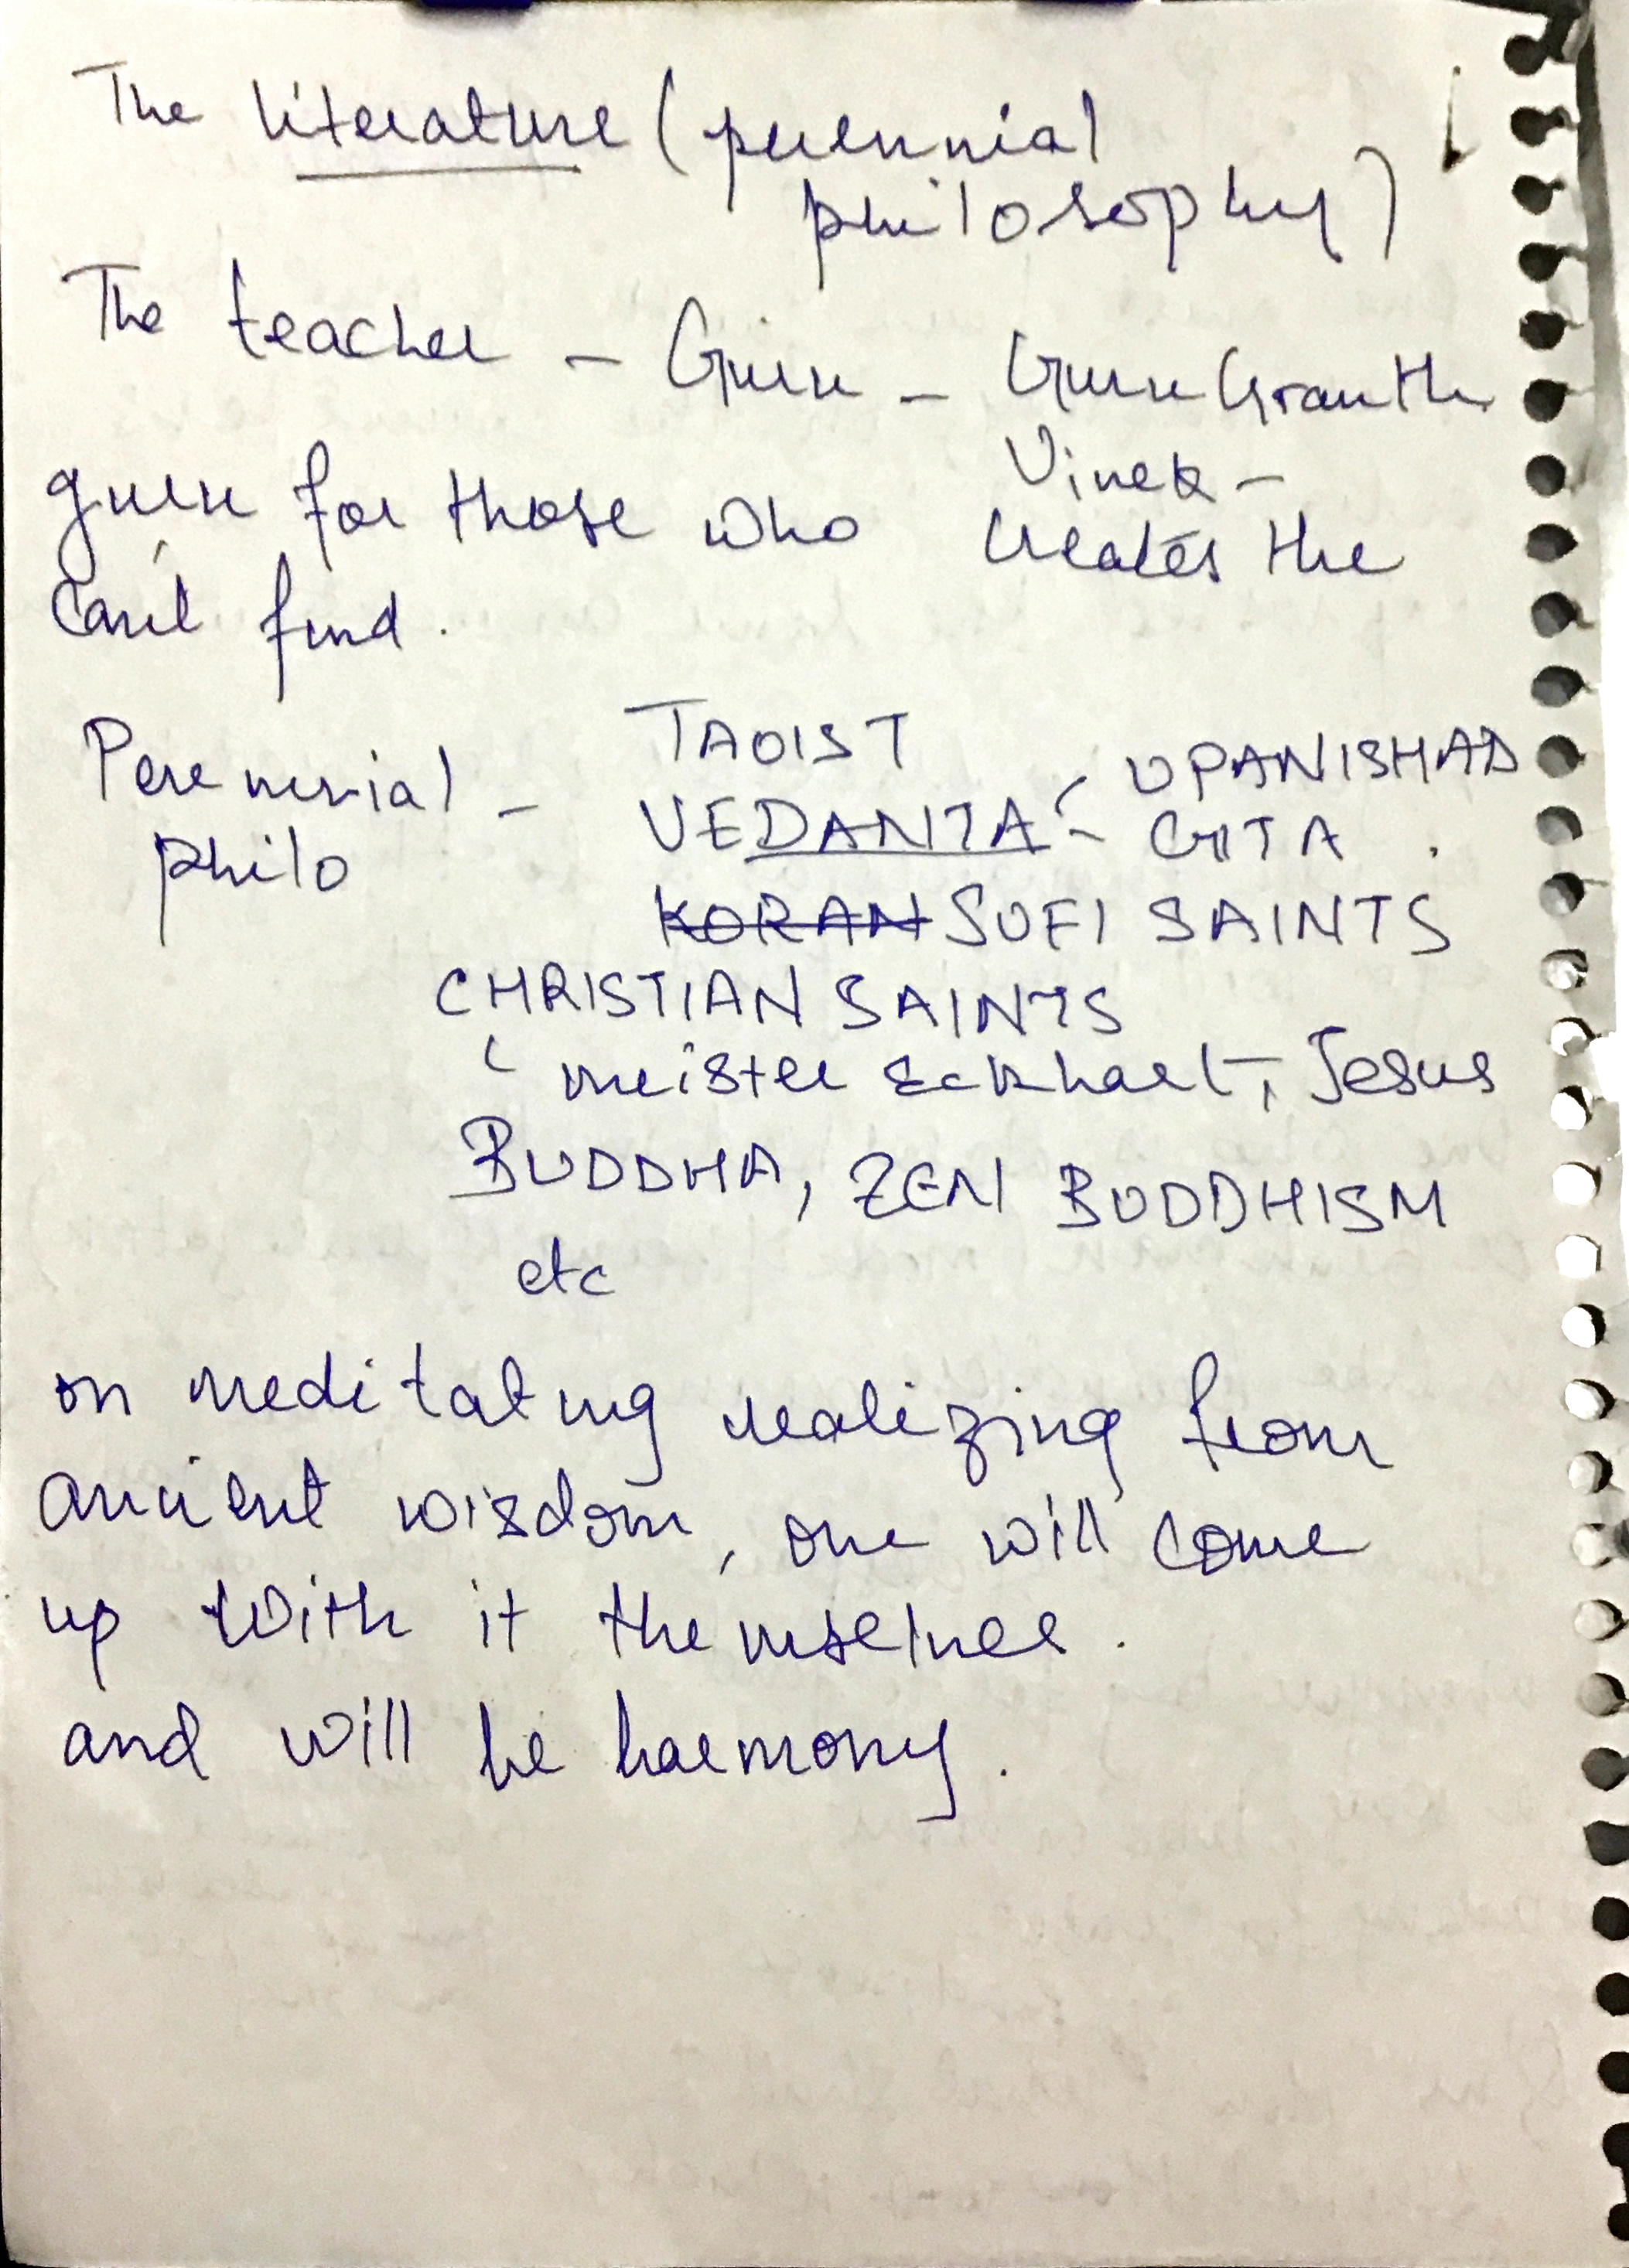 The literature (perennial
philosophy)
The teacher - Guru - Guru Granth
Vivek -
guru for those who creates the
can't find.
Perennial - TAOIST
philo VEDANTA - UPANISHAD
- GITA .
KORAN SUFI SAINTS
CHRISTIAN SAINTS
meister Eckhart, Jesus
BUDDHA, ZEN BUDDHISM
etc
on meditating realizing from
ancient wisdom, one will come
up with it themselves.
and will be harmony.